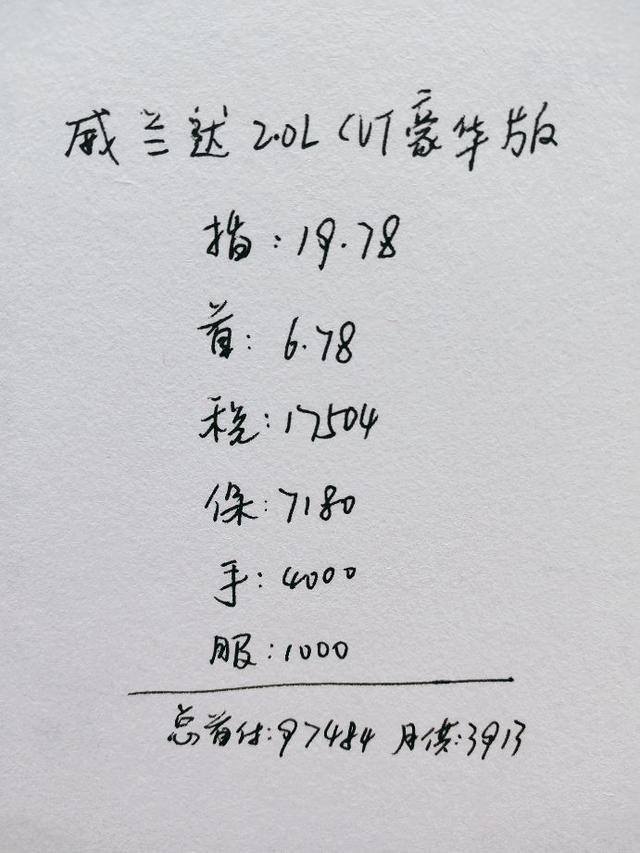 威兰达2.0L CVT豪华版
指:19.78
首:6.78
税:17504
保:7180
手:4000
服:1000
总首付:97484 月供:3913